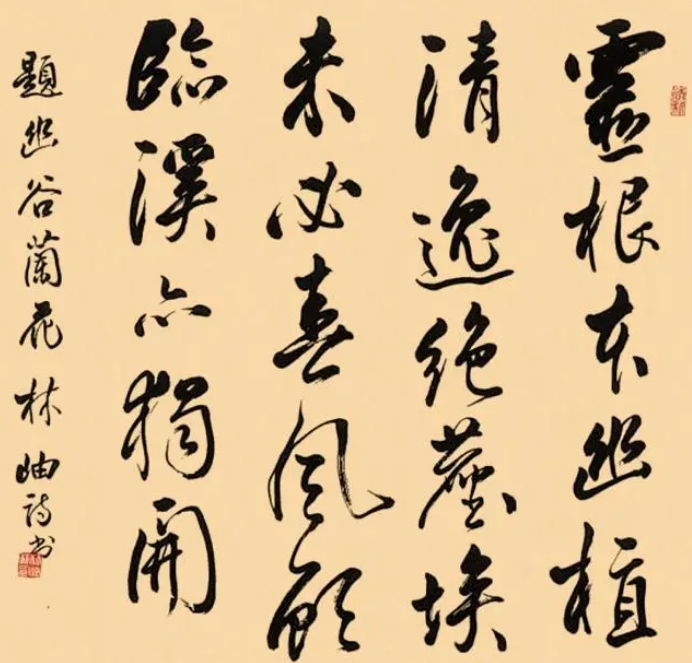 靈根本幽植
清逸絶塵埃
未必春風顧
臨溪亦獨開
題幽谷蘭花林岫詩書